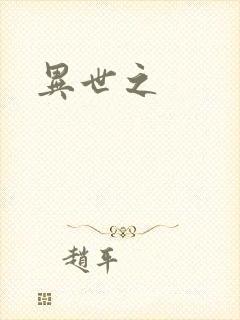 異世之
趙平